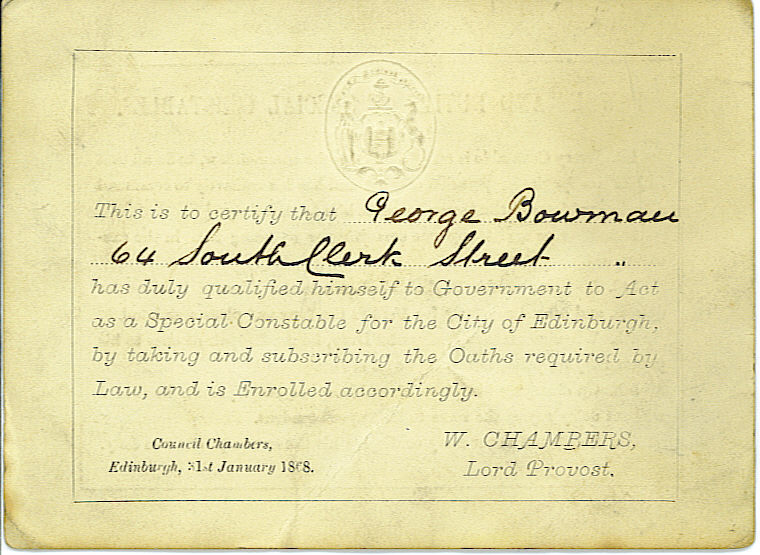 This is to certify that George Bowman
64 South Clerk Street „
has duly qualified himself to Government to Act
as a Special Constable for the City of Edinburgh,
by taking and subscribing the Oaths required by
Law, and is Enrolled accordingly.
Council Chambers,
Edinburgh, 31st January 1868.
W. CHAMBERS,
Lord Provost.